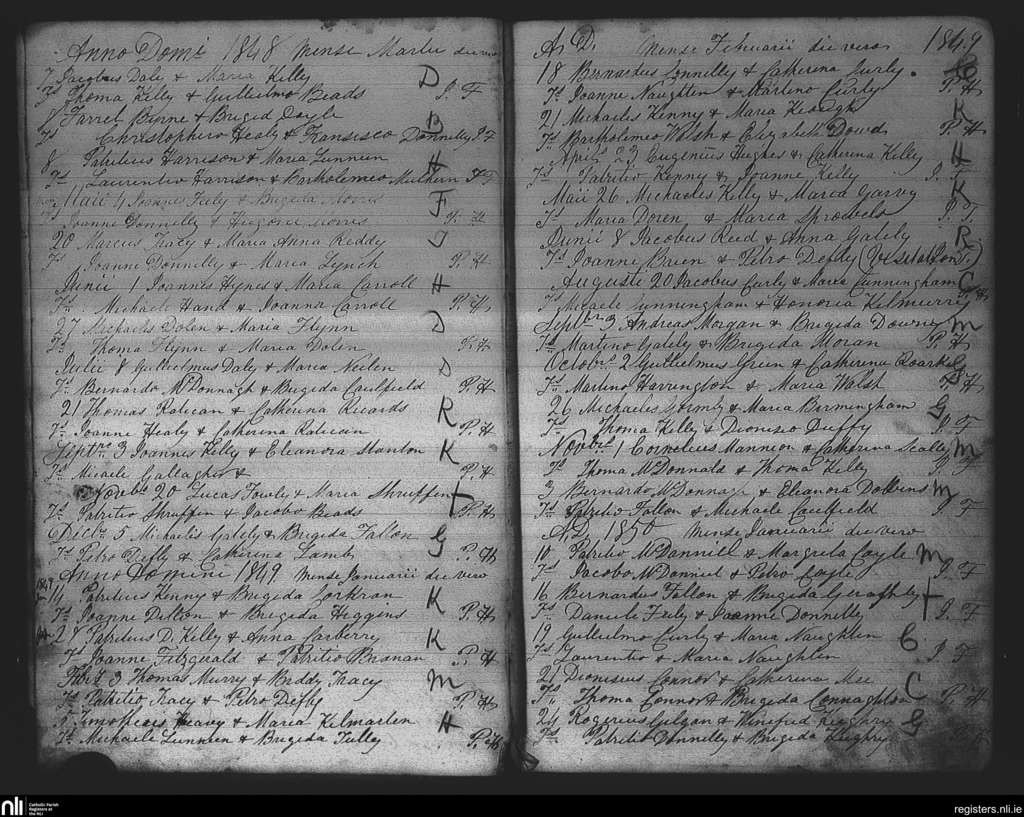 Anno Domi 1848 Mense Martii die vero
7 Jacobus Daly & Maria Kelly D
Ts Thoma Kelly & Gulielmo Beads J. F
8 Farrel Birne & Brigid Doyle B
Ts Christophero Healy & Fransisco Donnelly J F
8 Patritius Harrison & Maria Lunneen H
Ts Laurentio Harrison & Bartholemeo Mulhern J F
Maii 4 Joannes Feely & Brigida Morris F
Ts Joanne Donnelly & Morris P. H
20 Marcus Tracy & Maria Anna Reddy T
Ts Joanne Donnelly & Maria Lynch P. H
Junii 1 Joannes Hynes & Maria Carroll H
Ts Michaele Hand & Joanna Carroll P. H
27 Michaelis Dolen & Maria Flynn D
Ts Thoma Flynn & Maria Dolen P. H
Julii 8 Gullielmus Daly & Maria Neilen D
Ts Bernardo McDonnagh & Brigida Caulfield P. H
21 Thomas Ratican & Catherina Ricards R
Ts Joanne Healy & Catherina Ratican P. H
Septr 3 Joannes Kelly & Eleanora Stanton K
Ts Micaele Gallagher & P. H
Novebr 20 Lucas Fowly & Maria Shruffen F
Ts Patritio Shruffin & Jacobo Beads P. H
Dictr 5 Michaelis Gately & Brigida Fallon G
Ts Petro Deffly & Catherina Lamb P. H
Anno Domini 1849 Mense Januarii die vero
1849
14 Patritius Kenny & Brigida Corkran K
Ts Joanne Dillon & Brigida Higgins P. H
28 Patritius D. Kelly & Anna Carberry K
Ts Joanne Fitzgerald & Patritio Brenan P. H
Fbri 3 Thomas Murry & Biddy Tracy M
Ts Patritio Tracy & Petro Deffly P. H
Timotheus Heavy & Maria Kilmarten H
Ts Michaele Lunneen & Brigida Tully P. H
A. D. Mense Februarii die vero 1849
18 Bernardus Connelly & Catherina Curly C
Ts Joanne Naughten & Martino Curly P. H
21 Michaeles Kenny & Maria Keough K
Ts Bartholemeo Walsh & Elizabeth Dowd P. H
Aprils 23 Eugenius Hughes & Catherina Kelly H
Ts Patritio Kenny & Joanne Kelly J. F
Maii 26 Michaeles Kelly & Maria Garvey K
Ts Maria Doren & Maria J. F.
Junii 8 Jacobus Reed & Anna Gately R
Ts Joanne Brien & Petro Deffly (Visitation J.)
Auguste 20 Jacobus Curly & Maria Cunningham C
Ts Micaele Cunningham & Honoria Kilmurry P. H
Septbr 3 Andreas Morgan & Brigida Downey M
Ts Martino Gately & Brigida Moran P. H
Octobr 2 Gullielmus Green & Catherina Roarke G
Ts Martino Harrington & Maria Walsh P. H
26 Michaeles Gormly & Maria Birmingham G
Ts Thoma Kelly & Dionisio Duffy J F
Novbr 1 Cornelius Mannion & Catherina Scally M
Ts Thoma McDonnald & Thoma Kelly
3 Bernardo McDonnagh & Eleanora Dobbins M
Ts Patritio Fallon & Michaele Caulfield J F
A. D. 1850 Mense Januarii die vero
10 Patritio McDanniel & Margreta Coyle M
Ts Jacobo McDanniel & Petro Coyle J. F
16 Bernardus Fallon & Brigida Geraghty F
Ts Daniele Feely & Joanne Donnelly J. F
19 Gullielmo Curly & Maria Naughten C
Ts Laurentio & Maria Naughten J. F
21 Dionisius Connor & Catherina Mee C
Ts Thoma Connor & Brigida Connaghton P. H
24 Rogerius Gilgan & Winefred Keighry G
Ts Patritio Donnelly & Brigida Keighry
nli Catholic Parish
Registers at
the NLI
registers.nli.ie